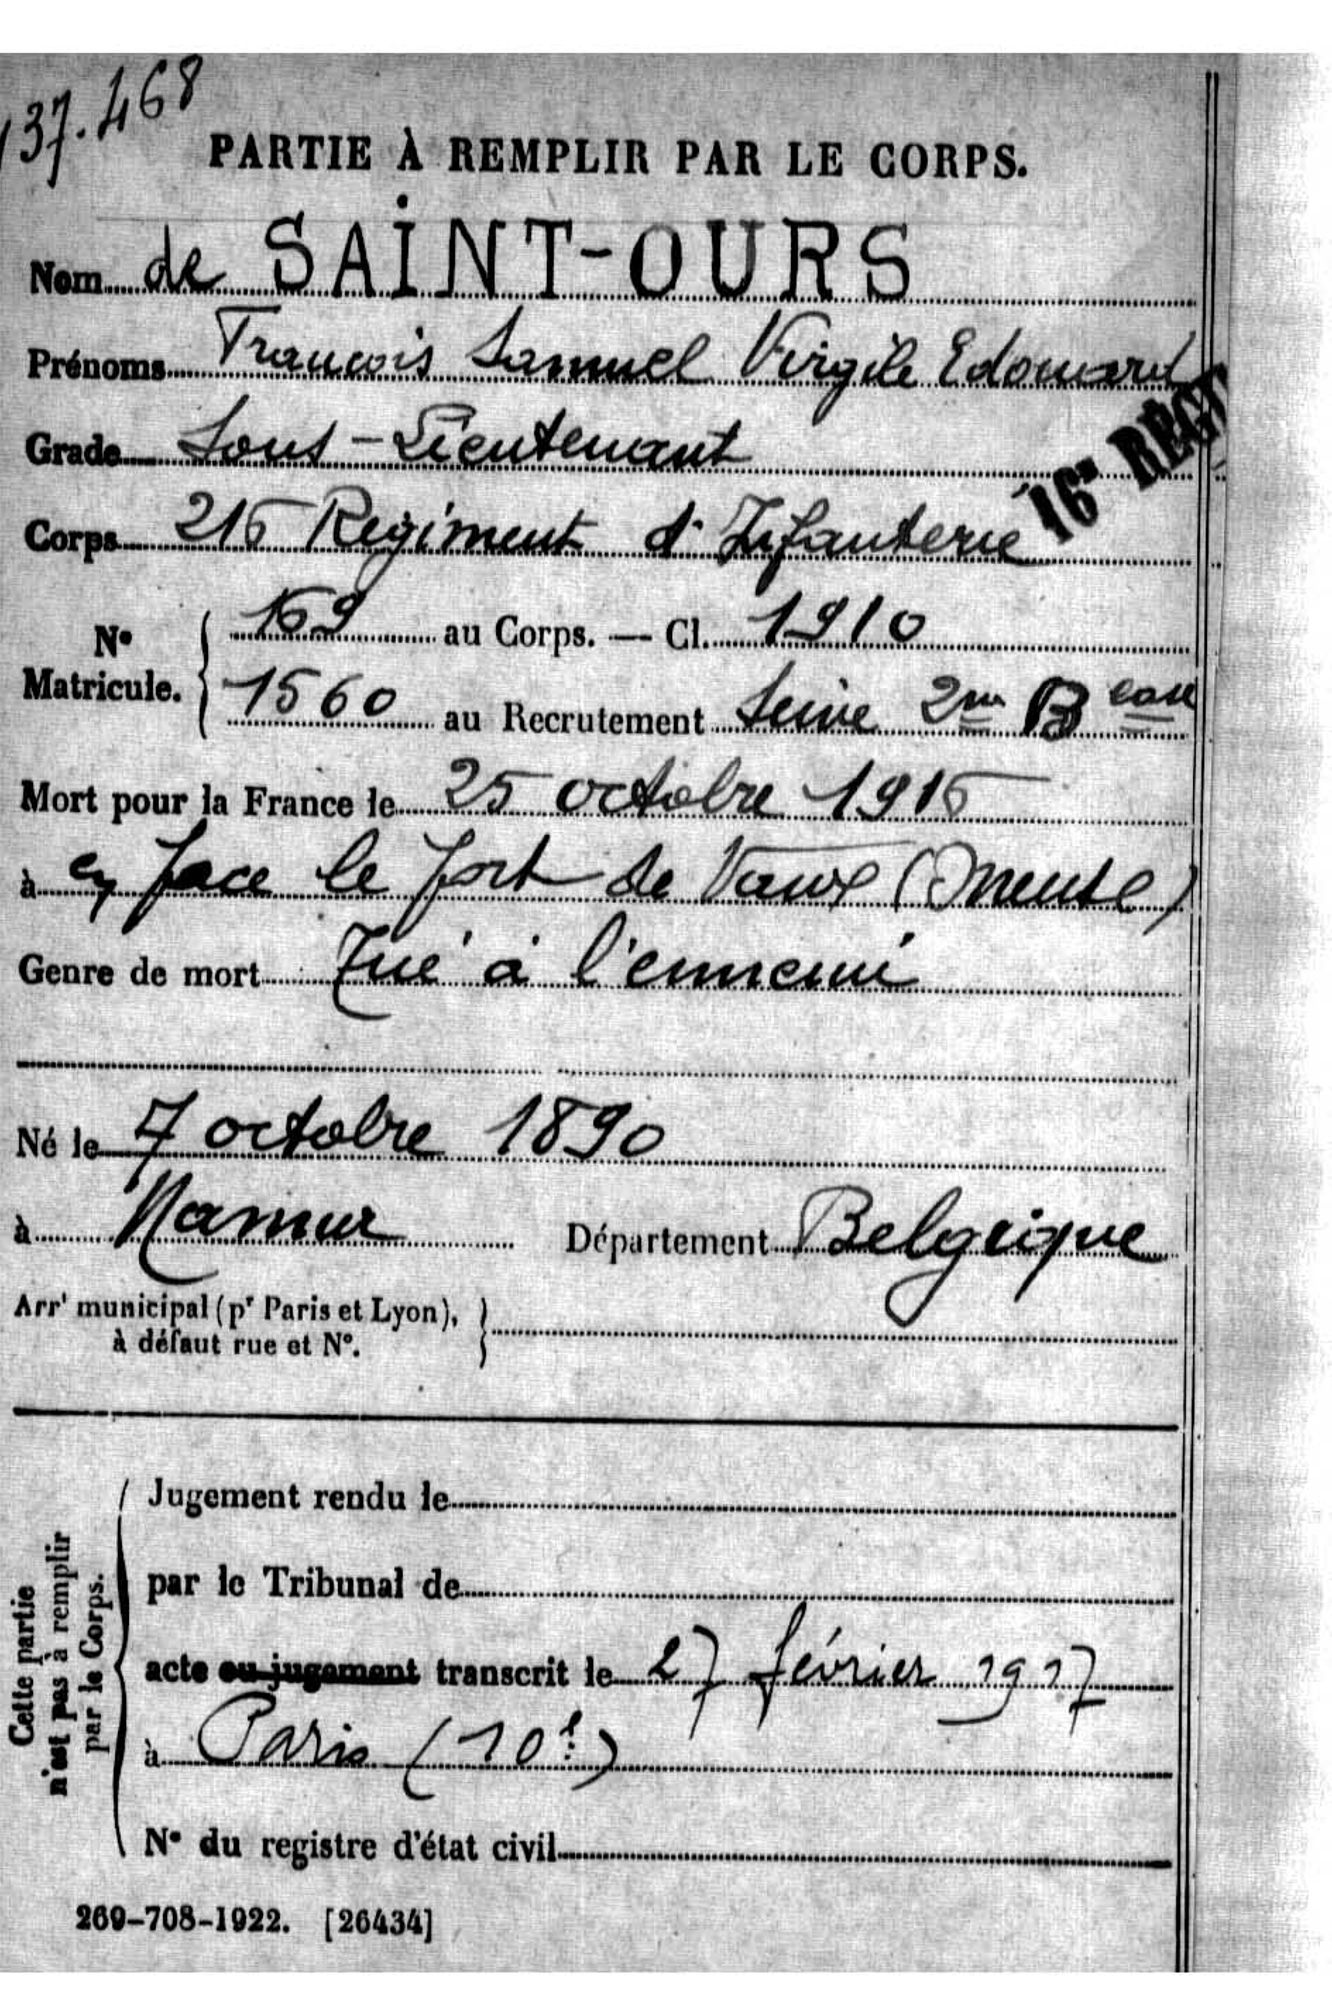 137.468
PARTIE À REMPLIR PAR LE CORPS.
Nom de SAINT-OURS
Prénoms Francois Samuel Virgile Edouard
Grade Sous-Lieutenant
16e REGT
Corps 216 Regiment d'Infanterie
N° Matricule. { 169 au Corps. — Cl. 1910
1560 au Recrutement Seine 2me B eau
Mort pour la France le 25 octobre 1916
à en face le fort de Vaux (Meuse)
Genre de mort Tué à l'ennemi
Né le 7 octobre 1890
à Namur Département Belgique
Arrt municipal (pr Paris et Lyon), }
à défaut rue et N°.
Cette partie n'est pas à remplir par le Corps.
Jugement rendu le
par le Tribunal de
acte ou jugement transcrit le 27 février 1917
à Paris (10e)
N° du registre d'état civil
269-708-1922. [26434]